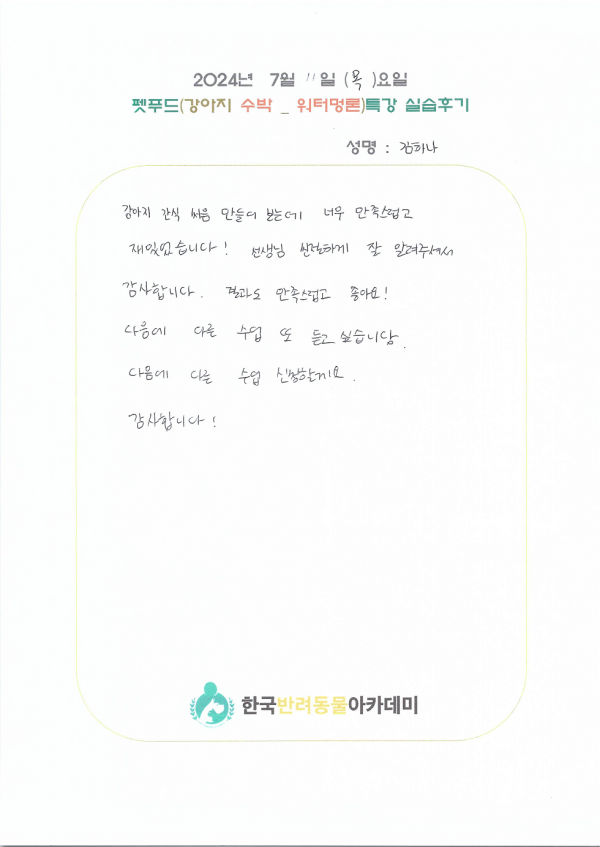 2024년 7월 11일 (목)요일
펫푸드(강아지 수박 _ 워터멍론)특강 실습후기
성명 : 김하나
강아지 간식 처음 만들어 보는데 너무 만족스럽고
재밌었습니다! 선생님 친절하게 잘 알려주셔서
감사합니다. 결과도 만족스럽고 좋아요!
다음에 다른 수업 또 듣고 싶습니다.
다음에 다른 수업 신청할게요.
감사합니다!
한국반려동물아카데미